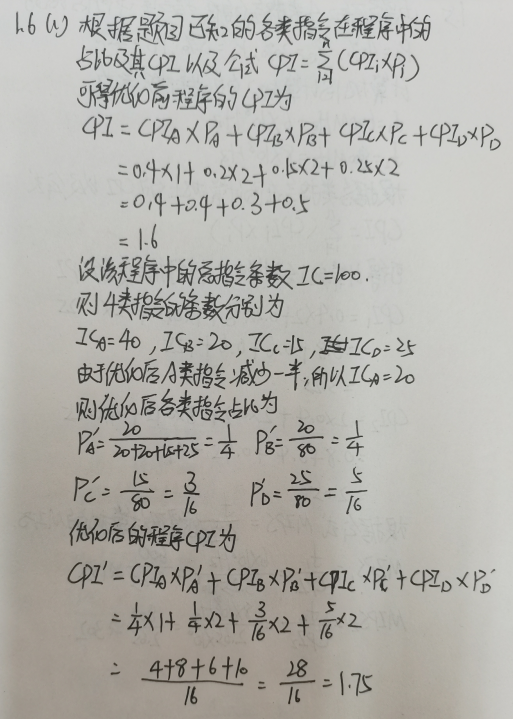 1.6 (1) 根据题目已知的各类指令在程序中的
占比及其CPI以及公式 CPI=∑ⁿᵢ₌₁(CPIᵢ×Pᵢ)
可得优化前程序的CPI为
CPI = CPI_A×P_A + CPI_B×P_B + CPI_C×P_C + CPI_D×P_D
=0.4×1+0.2×2+0.15×2+0.25×2
=0.4+0.4+0.3+0.5
=1.6
设该程序中的总指令条数 IC=100.
则4类指令的条数分别为
IC_A=40, IC_B=20, IC_C=15, IC_D=25
由于优化后A类指令减少一半,所以IC_A=20
则优化后各类指令占比为
P_A′=20/(20+20+15+25)=1/4 P_B′=20/80=1/4
P_C′=15/80=3/16 P_D′=25/80=5/16
优化后的程序CPI为
CPI′=CPI_A×P_A′+CPI_B×P_B′+CPI_C×P_C′+CPI_D×P_D′
=1/4×1+1/4×2+3/16×2+5/16×2
=(4+8+6+10)/16=28/16=1.75